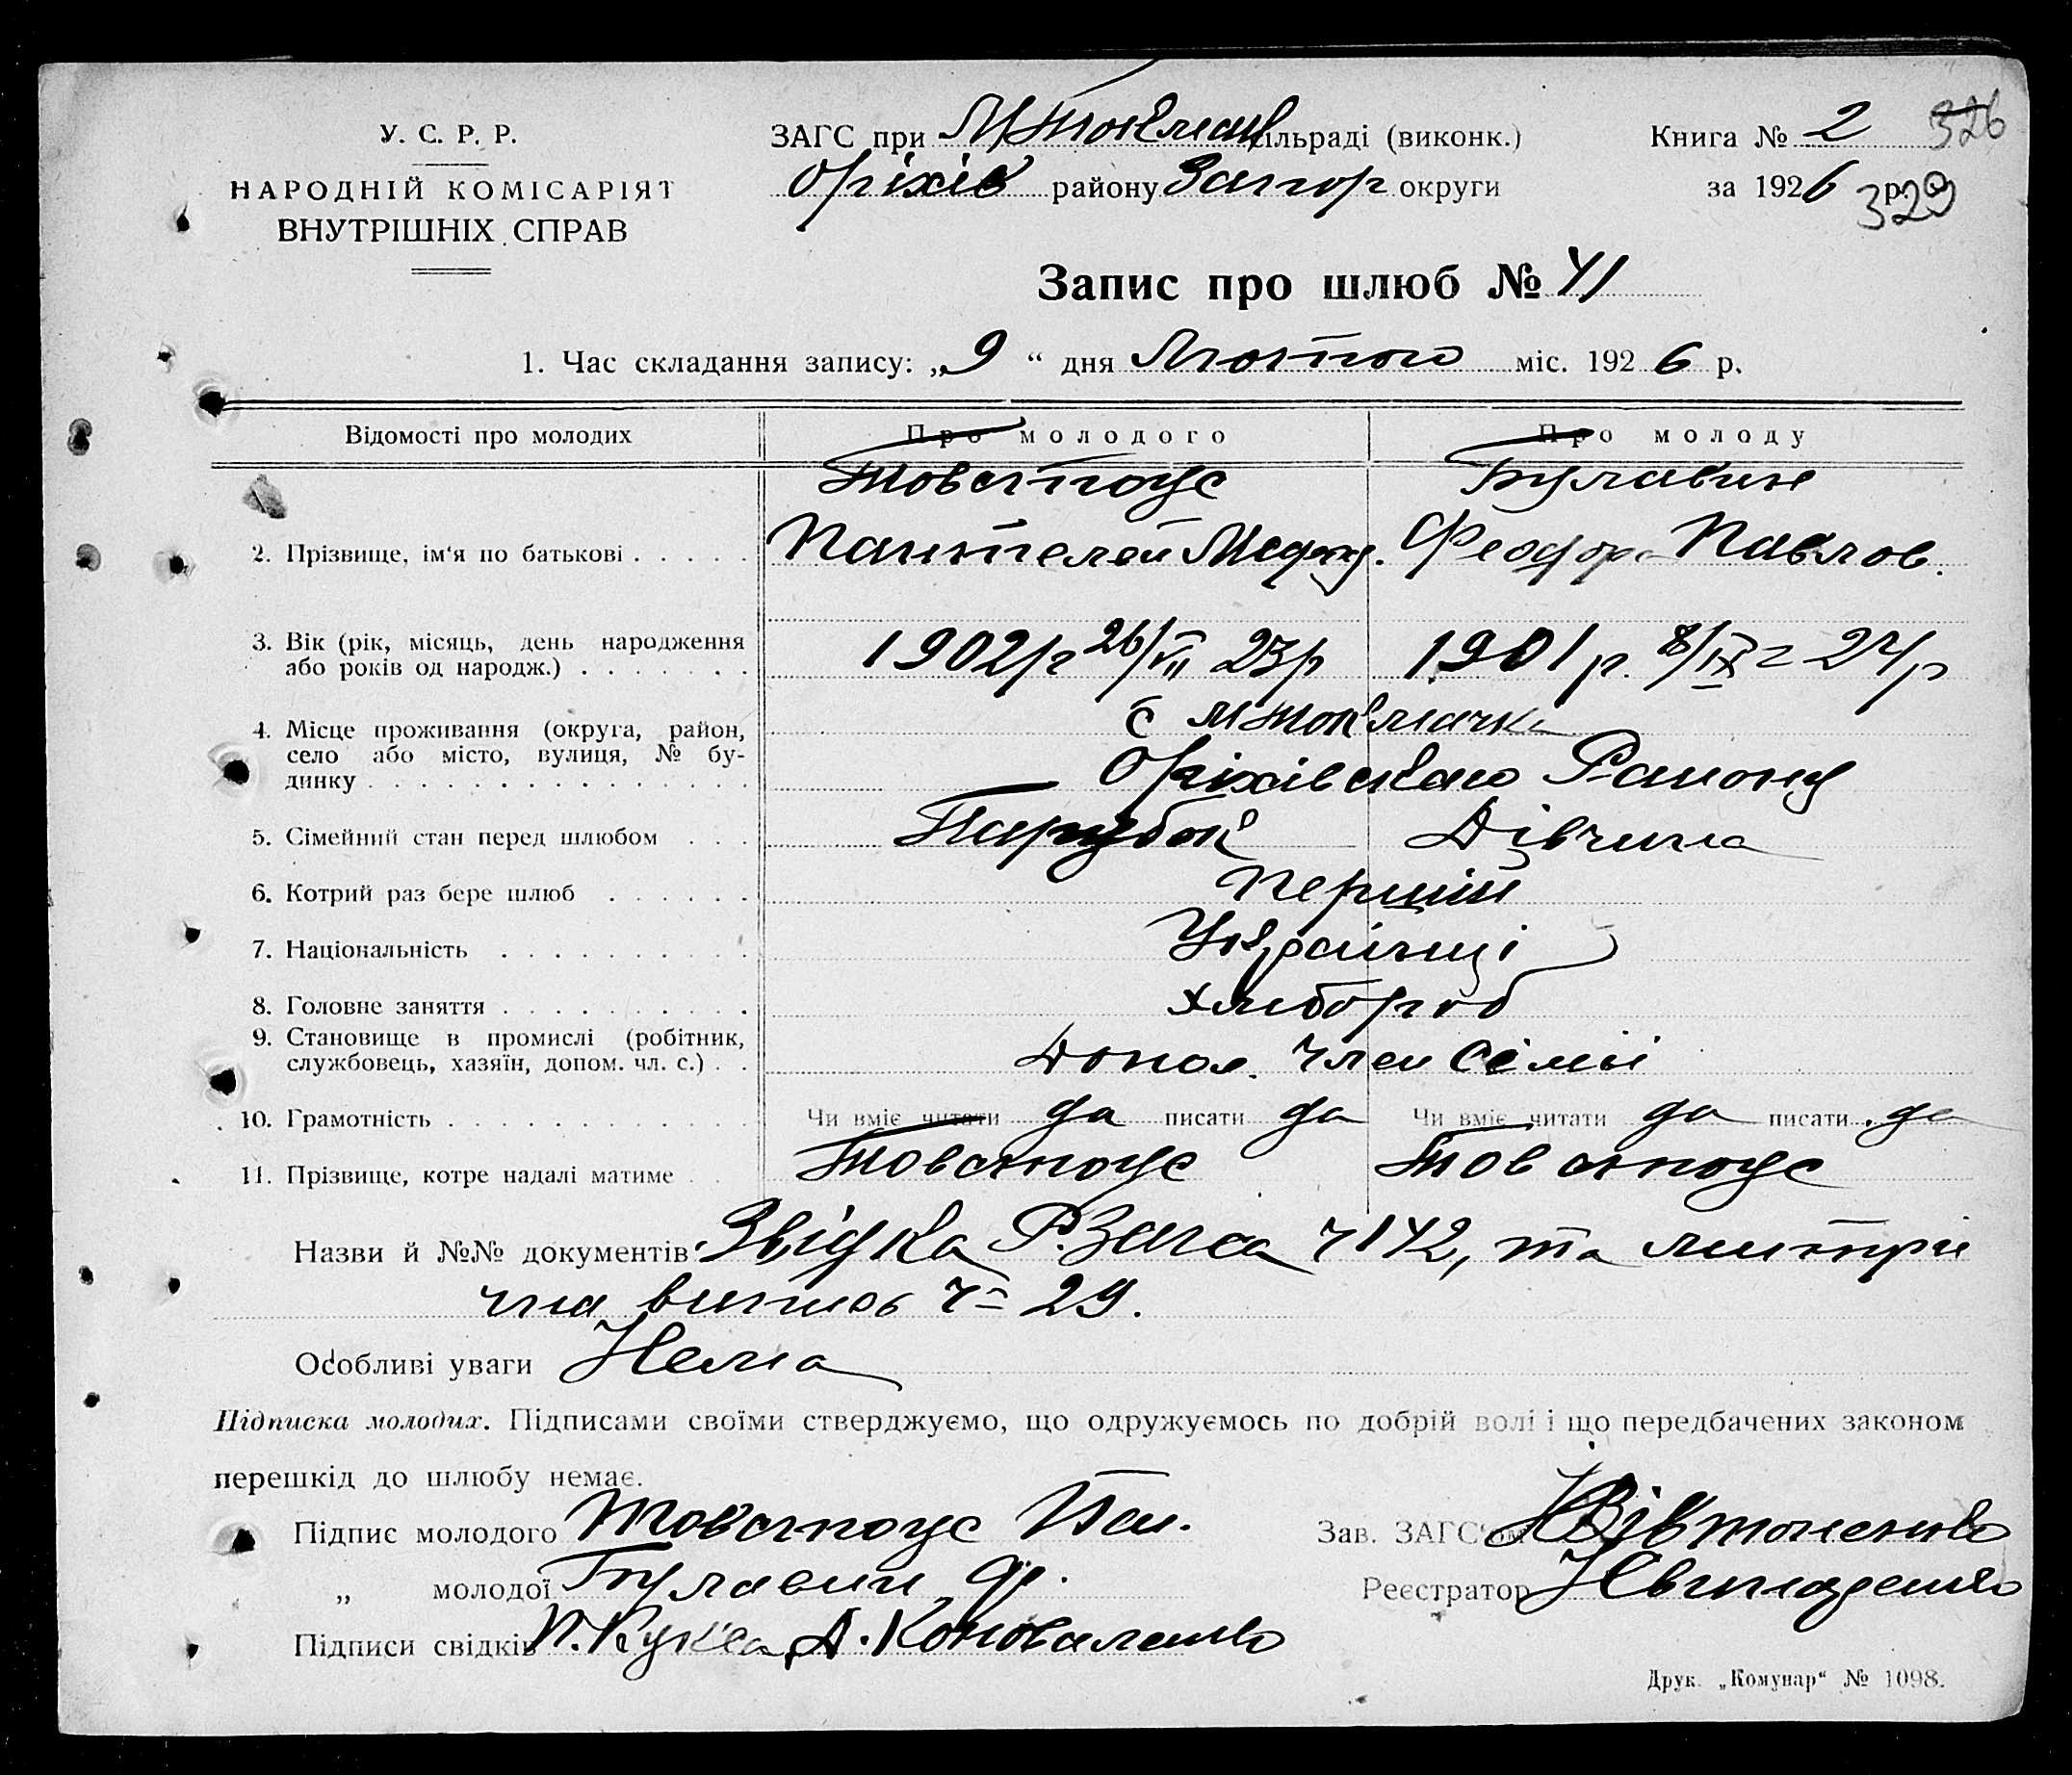 У. С. Р. Р.
НАРОДНІЙ КОМІСАРІЯТ
ВНУТРІШНІХ СПРАВ
ЗАГС при М Токмац сільраді (виконк.)
Оріхів району Запор округи
Книга № 2 326
за 1926 р. 329
Запис про шлюб № 41
1. Час складання запису: „9“ дня Лютого міс. 1926 р.
Відомості про молодих Про молодого Про молоду
Товстоус Булавин
2. Прізвище, ім'я по батькові Пантелей Мефод. Феодора Павлов.
3. Вік (рік, місяць, день народження
або років од народж.) 1902 р 26/VII 23 р 1901 р. 8/IX 24 р
4. Місце проживання (округа, район, с М Токмачка
село або місто, вулиця, № бу-
динку Оріхівскаго Району
5. Сімейний стан перед шлюбом Парубок Дівчина
6. Котрий раз бере шлюб Перший
7. Національність Українці
8. Головне заняття Хлибороб
9. Становище в промислі (робітник,
службовець, хазяїн, допом. чл. с.) Допом. член Сімьі
10. Грамотність Чи вміє читати да писати да Чи вміє читати да писати да
11. Прізвище, котре надалі матиме Товстоус Товстоус
Назви й №№ документів: Звідка Р. Загса ч 142, та метри
чна випись ч 29.
Особливі уваги Нема
Підписка молодих. Підписами своїми стверджуємо, що одружуємось по добрій волі і що передбачених законом
перешкід до шлюбу немає.
Підпис молодого Товстоус Пан.
Зав. ЗАГС'ом
„ молодої Булавин Ф.
Реєстратор
Підписи свідків П. Кукса, А. Коноваленко
Друк. „Комунар“ № 1098.